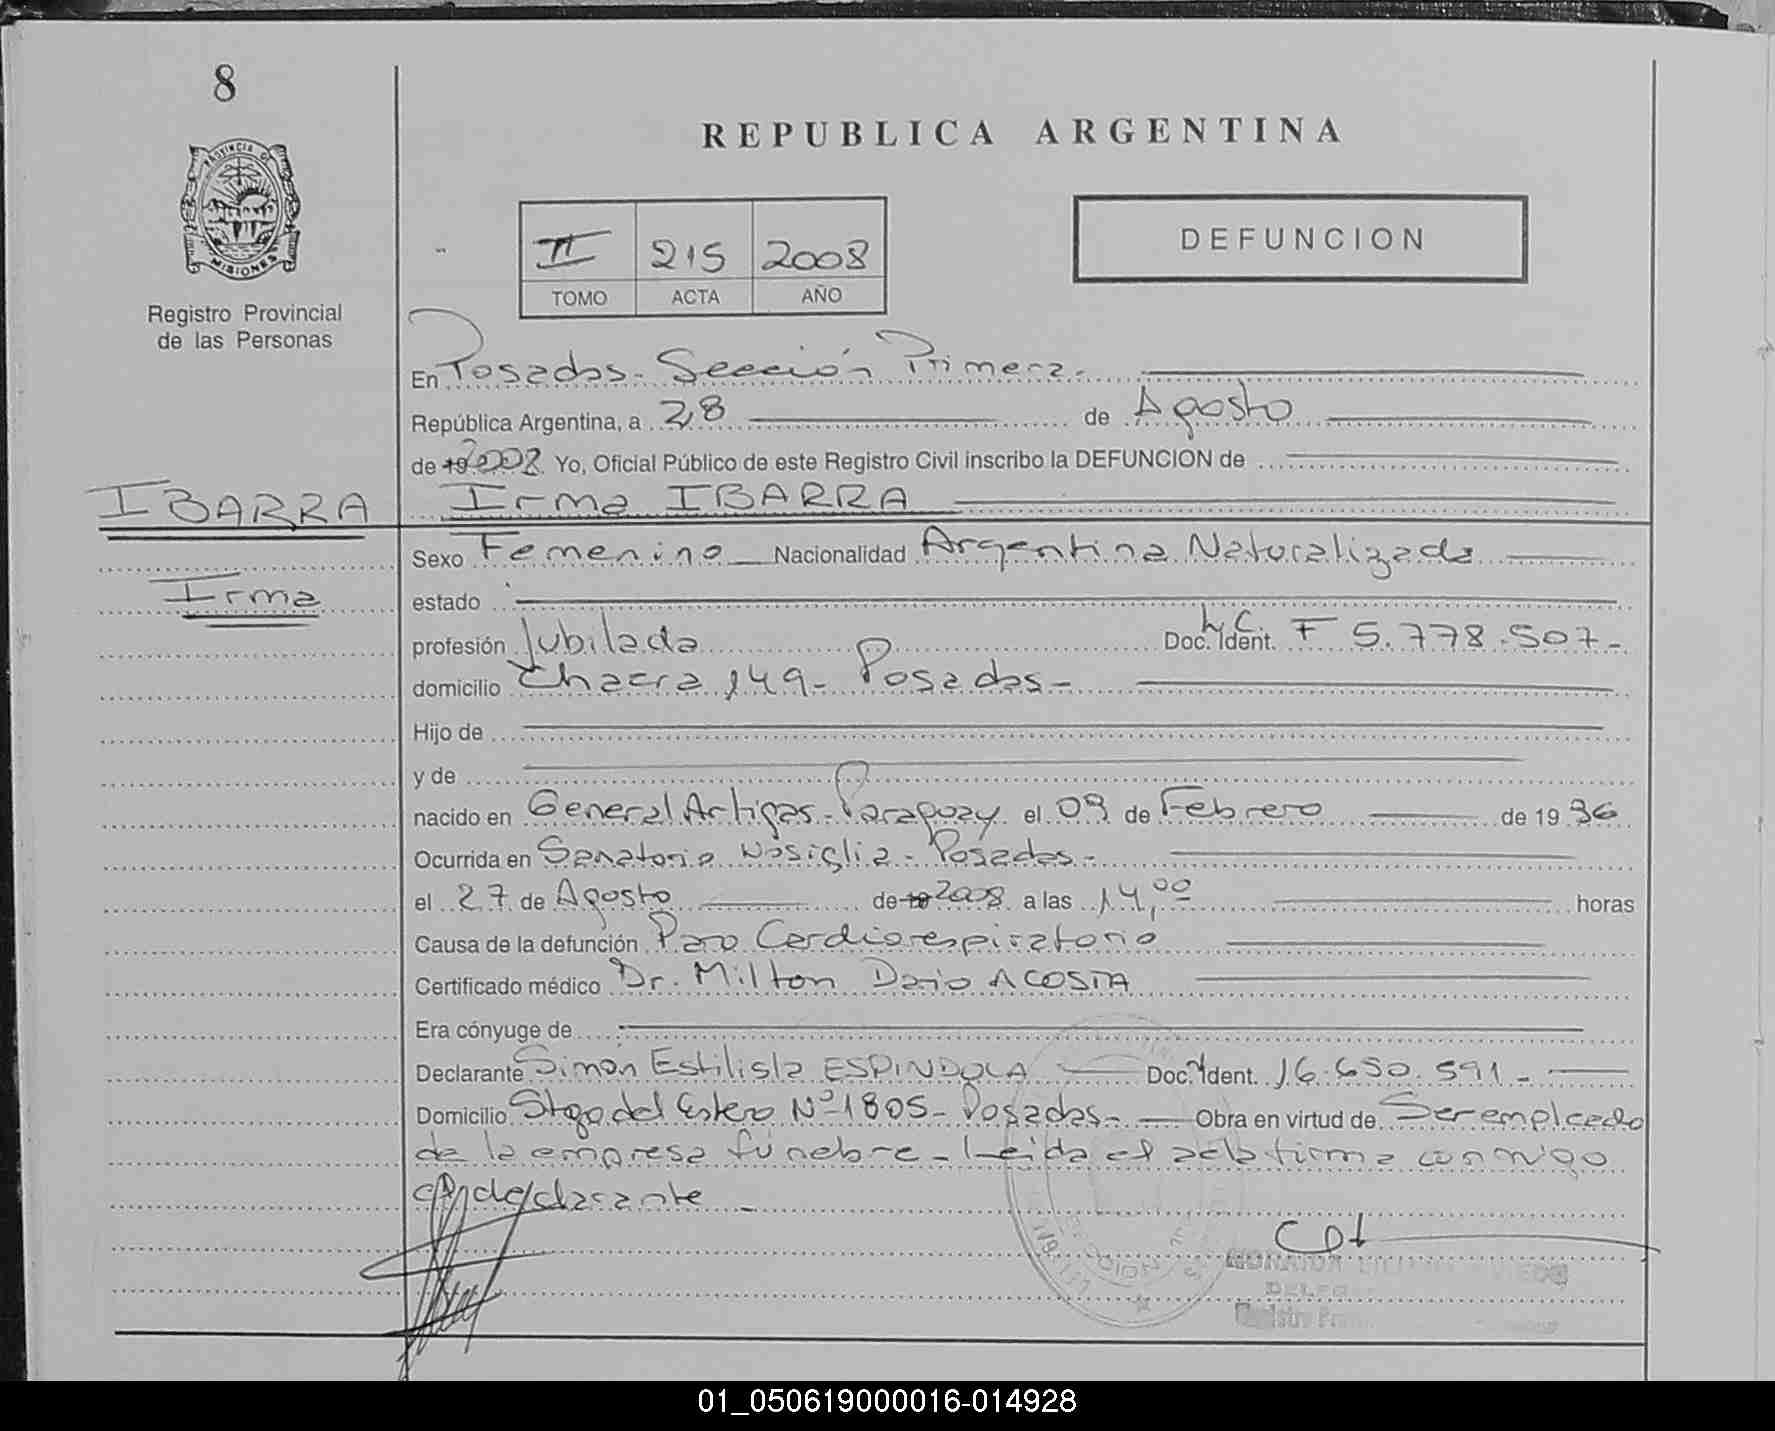 8
REPUBLICA ARGENTINA
PROVINCIA DE
MISIONES
II 215 2008
TOMO ACTA AÑO
DEFUNCION
Registro Provincial
de las Personas
En Posadas - Sección Primera -
República Argentina, a 28 de Agosto
de 19 2008 Yo, Oficial Público de este Registro Civil inscribo la DEFUNCION de
IBARRA Irma IBARRA
Sexo Femenino Nacionalidad Argentina Naturalizada
Irma
estado
profesión Jubilada Doc. Ident. L.C. F 5.778.507-
domicilio Chacra 149 - Posadas -
Hijo de
y de
nacido en General Artigas - Paraguay el 09 de Febrero de 1936
Ocurrida en Sanatorio Nosiglia - Posadas -
el 27 de Agosto de 19 2008 a las 14,00 horas
Causa de la defunción Paro Cardiorespiratorio
Certificado médico Dr. Milton Dario ACOSTA
Era cónyuge de
Declarante Simón Estilisla ESPINDOLA Doc. Ident. 16.650.591-
Domicilio Stgo del Estero Nº 1805 - Posadas - Obra en virtud de Ser empleado
de la empresa fúnebre - Leida el acta firma conmigo
el declarante -
01_050619000016-014928